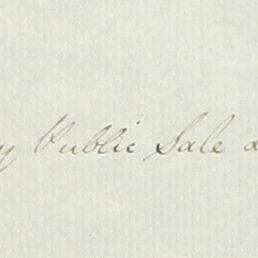 y Public Sale a